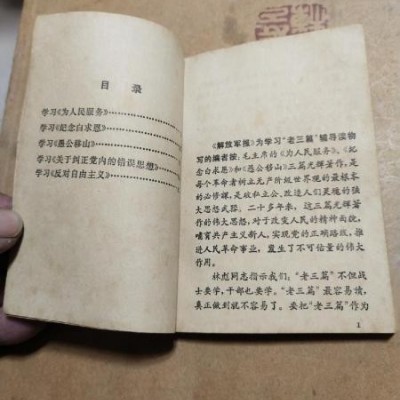 目 录
学习《为人民服务》
学习《纪念白求恩》
学习《愚公移山》
学习《关于纠正党内的错误思想》
学习《反对自由主义》
《解放军报》为学习“老三篇”辅导读物
写的编者按：毛主席的《为人民服务》、《纪
念白求恩》和《愚公移山》三篇光辉著作，是
每个革命者树立无产阶级世界观的最根本
的必修课，是破私立公、改造人们灵魂的强
大思想武器。二十多年来，这三篇光辉著
作的伟大思想，对于改变人民的精神面貌，
哺育共产主义新人，实现党的正确路线，推
进人民革命事业，发生了不可估量的伟大
作用。
林彪同志指示我们，“老三篇”不但战
士要学，干部也要学。“老三篇”最容易读，
真正做到就不容易了。要把“老三篇”作为
1